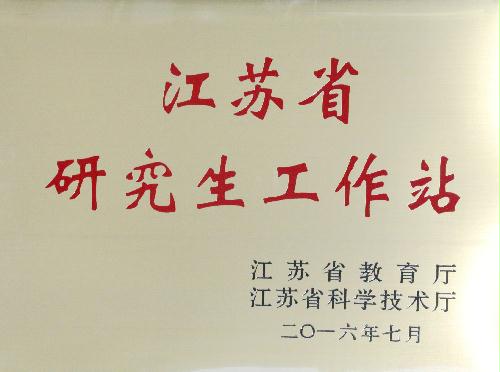 江苏省
研究生工作站
江苏省教育厅
江苏省科学技术厅
二〇一六年七月